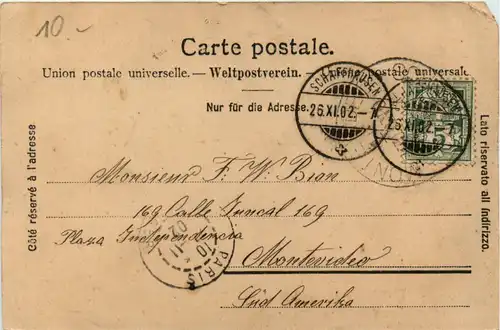 10.-
Carte postale.
Union postale universelle. — Weltpostverein. — postale universale
Nur für die Adresse.
SCHAFFHAUSEN
26.XI.02.-7
26.XI.02.-7
5
Côté réservé à l'adresse
Lato riservato all'indirizzo.
Monsieur F. W. Bran
169 Calle Juncal 169
Plaza Independencia
Montevideo
Süd Amerika
PARIS